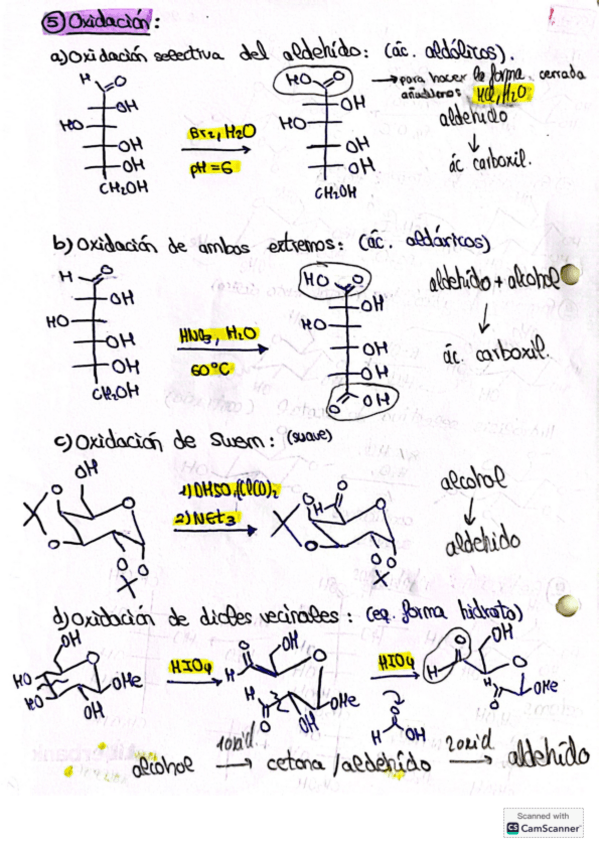 ⑤ Oxidación:
a) Oxidación selectiva del aldehido: (ác. aldólicos).
H O HO O → para hacer la forma cerrada
añadimos HCl, H2O
OH OH aldehido
HO HO
Br2, H2O
OH OH ↓
pH = 6
OH OH ác carboxil.
CH2OH CH2OH
b) Oxidación de ambos extremos: (ác. aldáricos)
H O HO O aldehido + alcohol
OH OH
HO HO ↓
HNO3, H2O
OH OH ác. carboxil.
60°C
OH OH
CH2OH O OH
c) Oxidación de Swern: (suave)
OH alcohol
1) DMSO, (ClCO)2 H O
O O O O ↓
2) NEt3
O O aldehido
O O O O
d) Oxidación de dioles vecinales: (eq. forma hidrato)
OH OH O OH
HO O HIO4 H O O HIO4 H O
HO OMe H OMe H OMe
OH O OH O O
H OH
alcohol 1oxid → cetona / aldehído 2oxid → aldehído
Scanned with
CS CamScanner